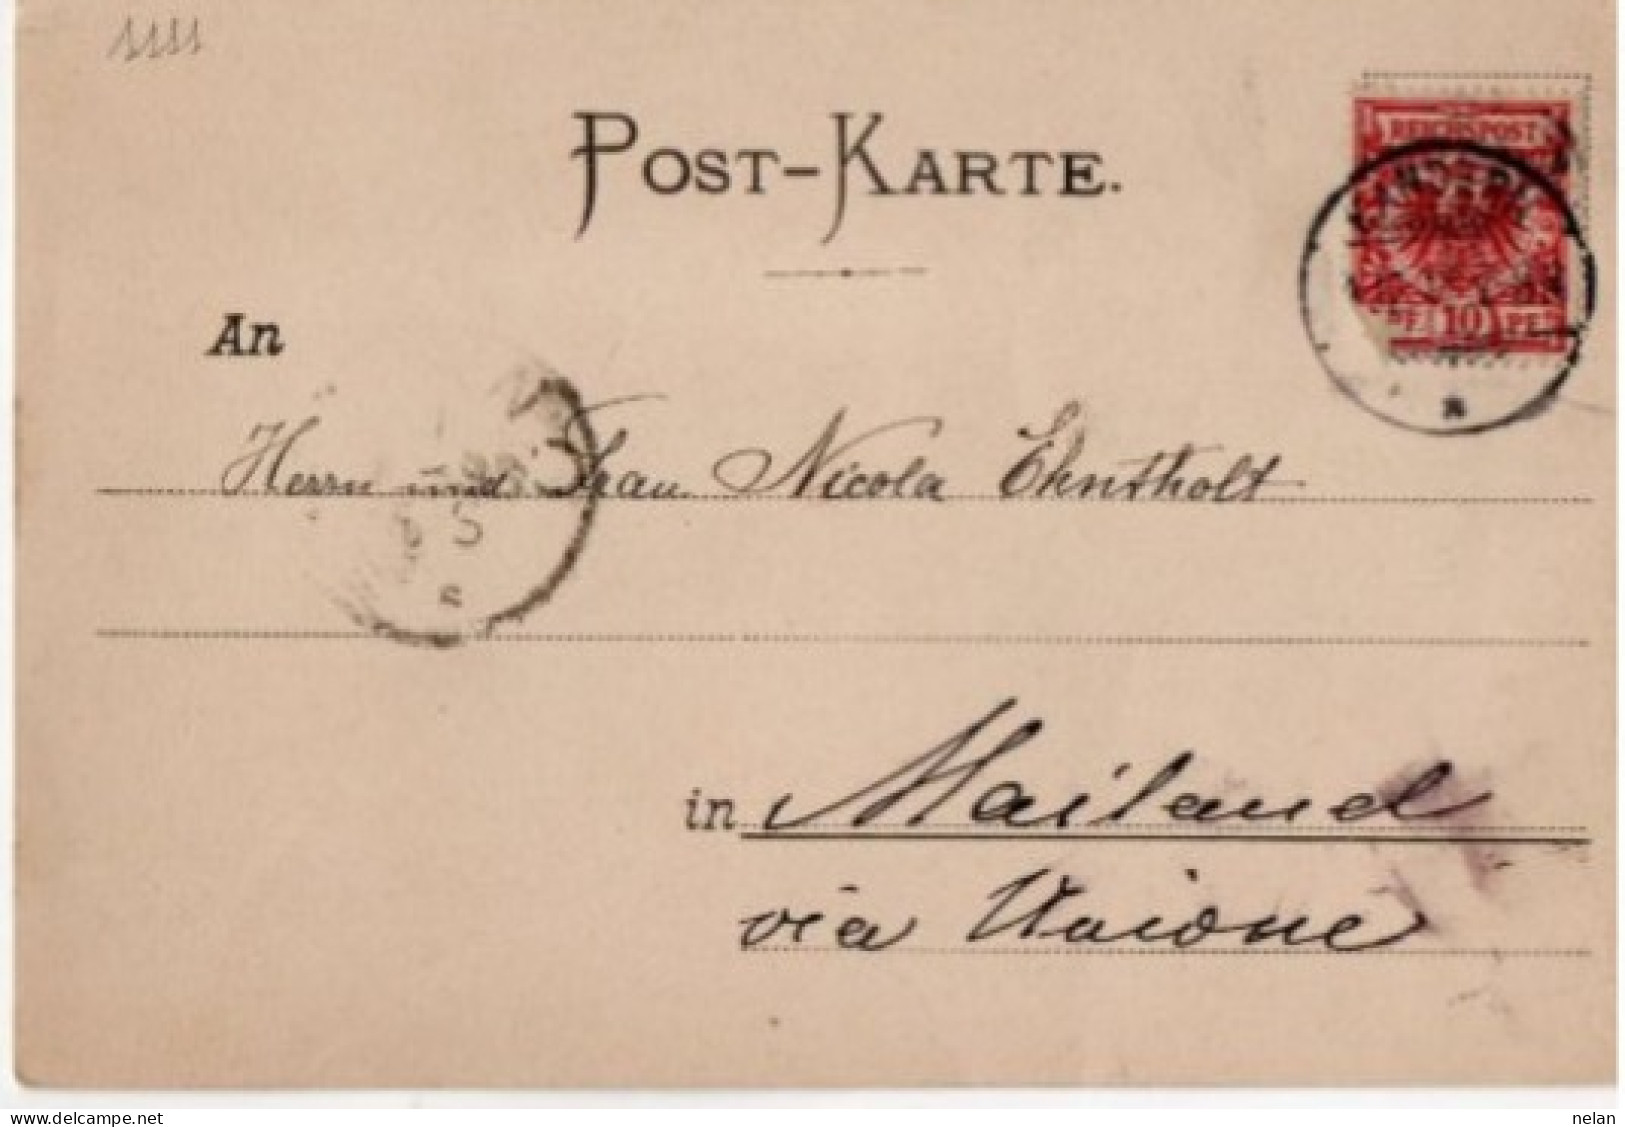 1111
POST-KARTE.
REICHSPOST
PF. 10 PF.
An
Herrn und Frau Nicola Ehntholt
5
in Mailand
via Unione
www.delcampe.net
nelan